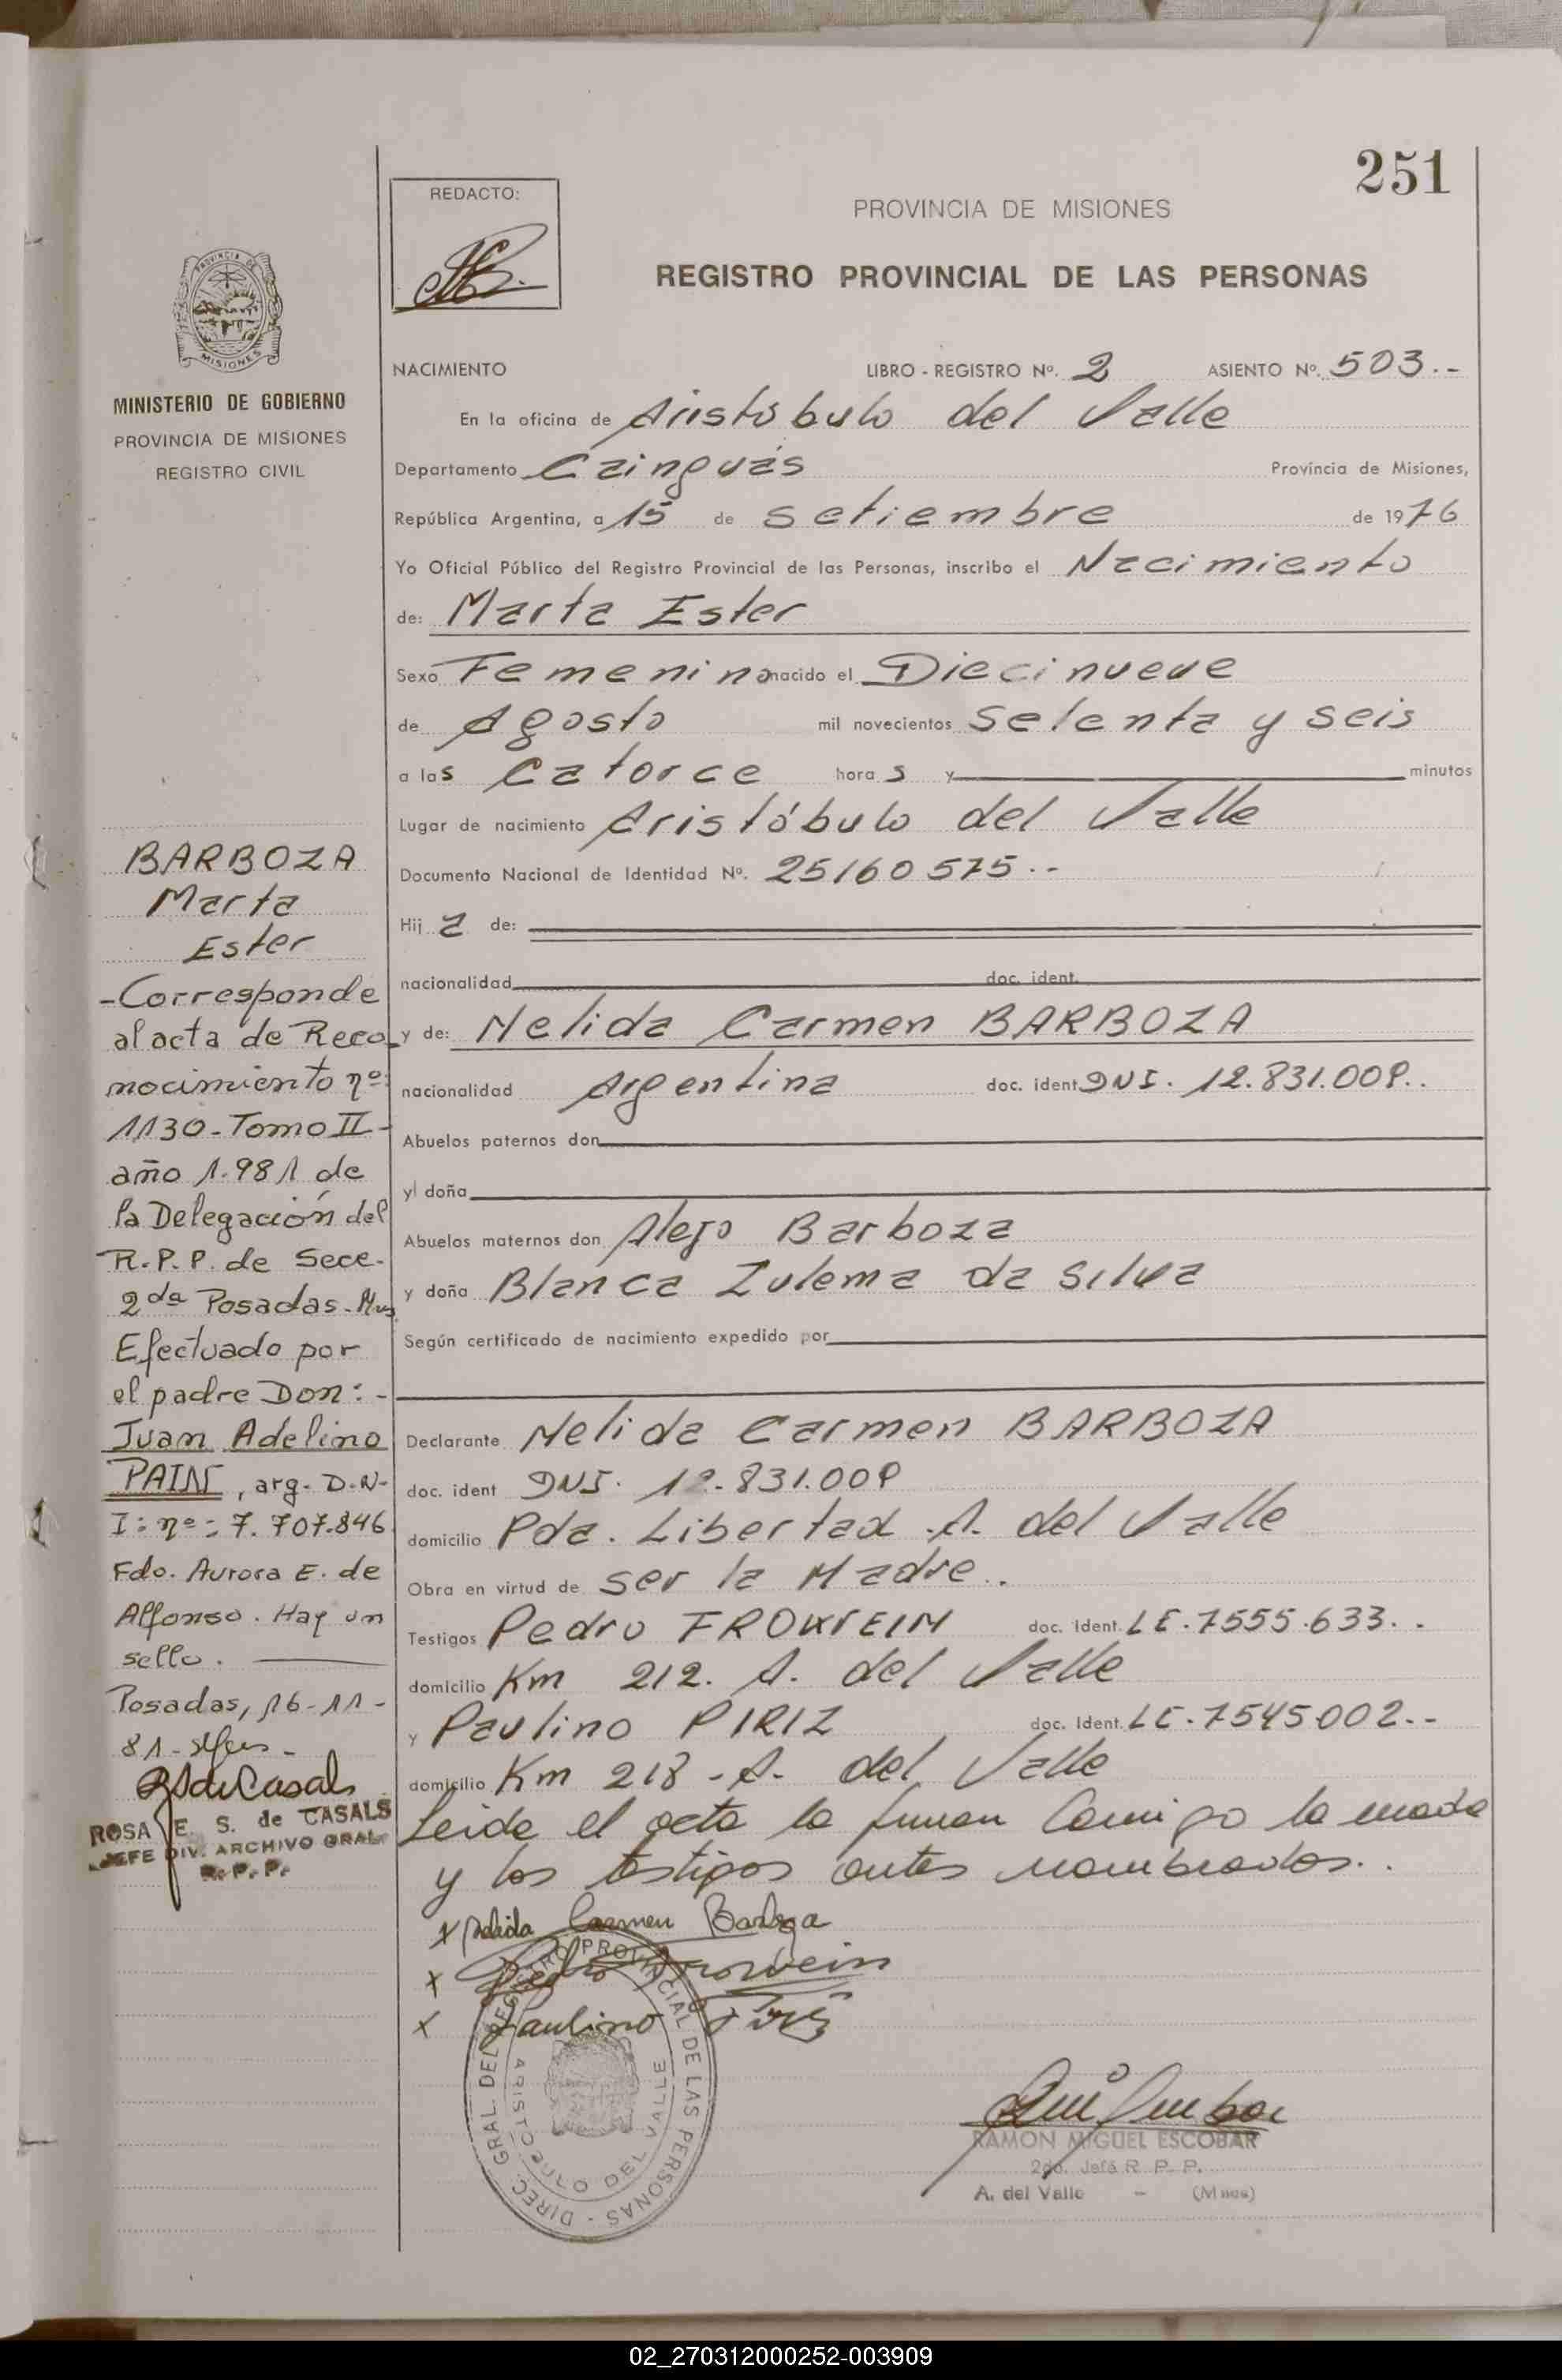 251
REDACTO:
PROVINCIA DE MISIONES
REGISTRO PROVINCIAL DE LAS PERSONAS
PROVINCIA DE
MISIONES
MINISTERIO DE GOBIERNO
PROVINCIA DE MISIONES
REGISTRO CIVIL
NACIMIENTO LIBRO - REGISTRO Nº. 2 ASIENTO Nº. 503.-
En la oficina de Aristóbulo del Valle
Departamento Cainguás Provincia de Misiones,
República Argentina, a 15 de setiembre de 1976
Yo Oficial Público del Registro Provincial de las Personas, inscribo el Nacimiento
de: Marta Ester
Sexo Femenino nacido el Diecinueve
de Agosto mil novecientos setenta y seis
a las catorce horas y minutos
Lugar de nacimiento Aristóbulo del Valle
Documento Nacional de Identidad Nº. 25160575.--
Hija de:
nacionalidad doc. ident.
y de: Nelida Carmen BARBOZA
nacionalidad Argentina doc. ident. DNI. 12.831.009..
Abuelos paternos don
y doña
Abuelos maternos don Alejo Barboza
y doña Blanca Zulema da Silva
Según certificado de nacimiento expedido por
Declarante Nelida Carmen BARBOZA
doc. ident DNI. 12.831.009
domicilio Pda. Libertad A. del Valle
Obra en virtud de ser la Madre..
Testigos Pedro FROWEIN doc. Ident. LE.7555.633..
domicilio Km 212. A. del Valle
y Paulino PIRIZ doc. Ident. LE.7545002.--
domicilio Km 218 - A. del Valle
Leida el acta la firman Conmigo la madre
y los testigos antes nombrados..
x Nelida Carmen Barboza
x Pedro Frowein
x Paulino Piriz
DIREC. GRAL. DEL REGISTRO PROVINCIAL DE LAS PERSONAS -
ARISTOBULO DEL VALLE
RAMON MIGUEL ESCOBAR
2do. Jefe R. P. P.
A. del Valle - (Mnes)
BARBOZA
Marta
Ester
-Corresponde
al acta de Reco-
nocimiento nº:
1130-Tomo II-
año 1.981 de
la Delegación del
R.P.P. de Secc.
2da Posadas-Mns
Efectuado por
el padre Don:-
Juan Adelino
PAIN, arg. D.N-
I: nº: 7.707.846
Fdo. Aurora E. de
Alfonso. Hay un
sello.
Posadas, 16-11-
81-
ROSA E. S. de CASALS
JEFE DIV. ARCHIVO GRAL.
R. P. P.
02_270312000252-003909